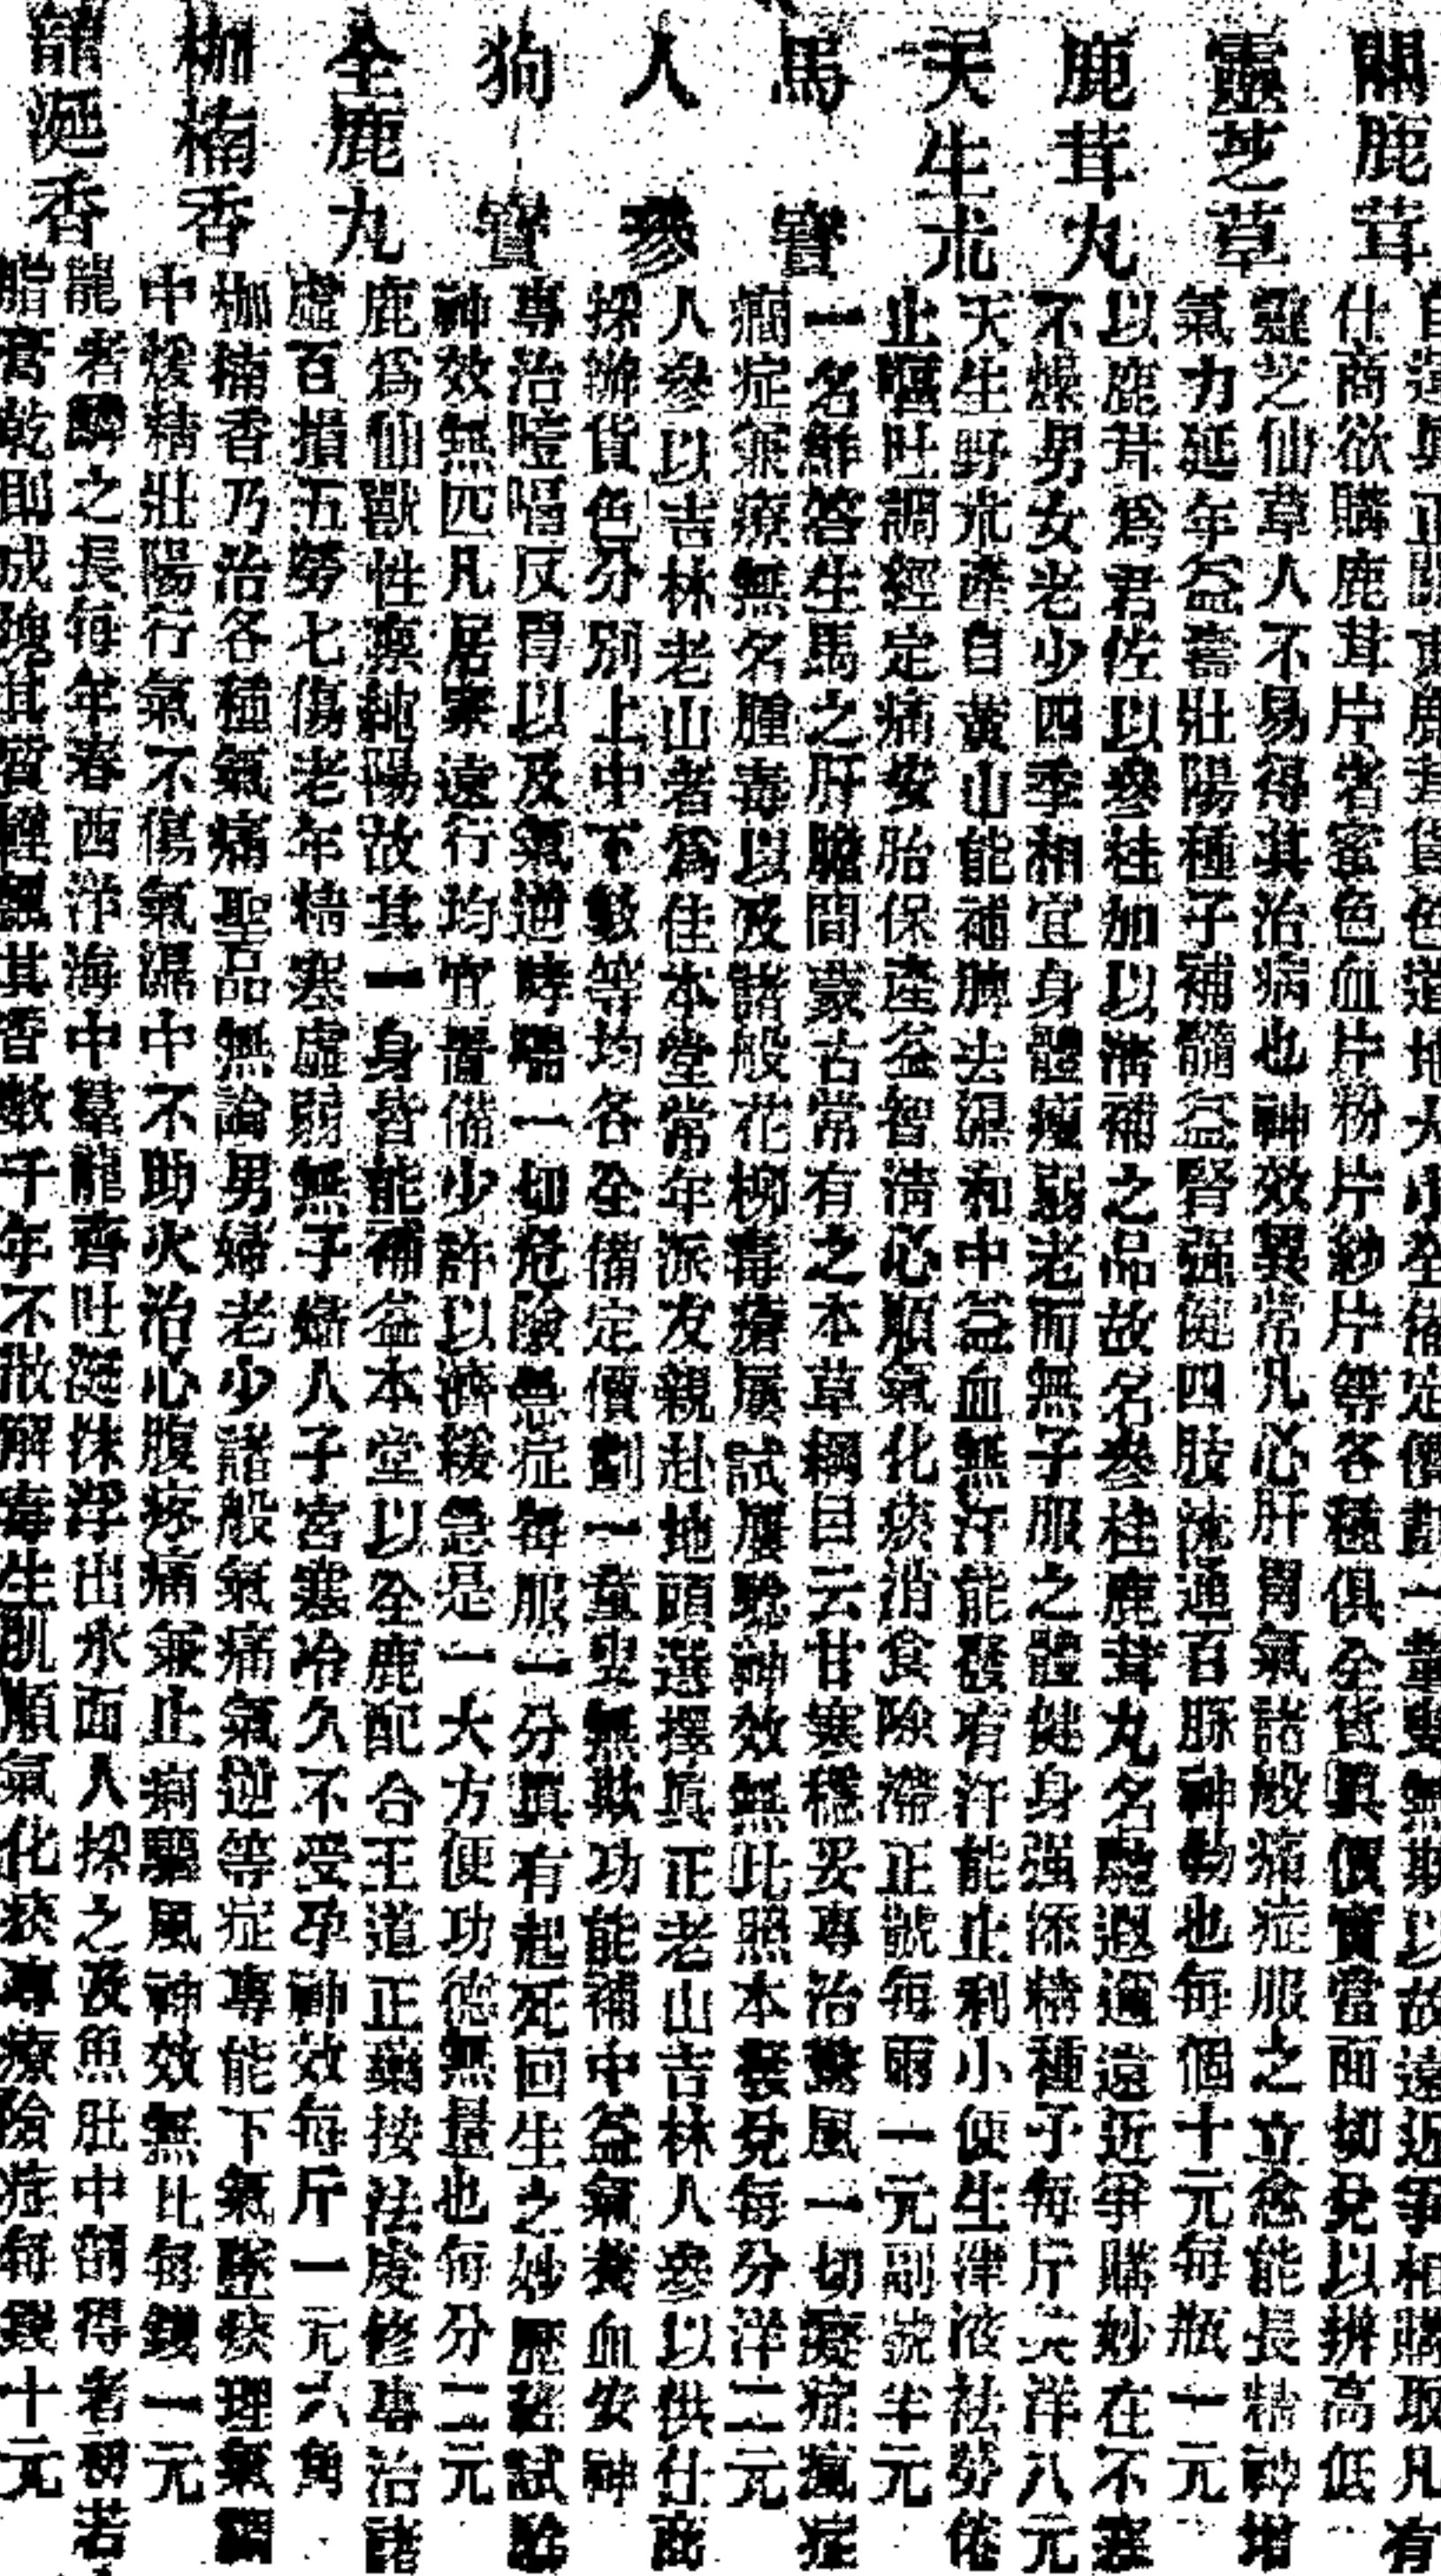 關鹿茸
自運眞正關東鹿茸貨色道地大小全備定價劃一童叟無欺以故遠近爭相購取凡有
仕商欲購鹿茸片者蜜色血片粉片紗片等各種俱全貨眞價實當面切兌以辨高低
靈芝草
靈芝仙草人不易得其治病也神效異常凡心肝胃氣諸般痛症服之立愈能長精神增
氣力延年益壽壯陽種子補髓益腎强健四肢流通百脈神物也每個十元每瓶一元
鹿茸丸
以鹿茸爲君佐以參桂加以淸補之品故名參桂鹿茸丸名馳遐邇遠近爭購妙在不寒
不燥男女老少四季相宜身體瘦弱老而無子服之體健身强添精種子每斤英洋八元
天生朮
天生野朮產自黃山能補脾去濕和中益血無汗能發有汗能止利小便生津液祛勞倦
止嘔吐調經定痛安胎保產益智淸心順氣化痰消食除滯正號每兩一元副號半元
馬寶
一名鮮答生馬之肝膽間蒙古常有之本草綱目云甘寒穩妥專治驚風一切癡症瘋症
癇症兼療無名腫毒以及諸般花柳毒瘡屢試屢驗神效無比照本發兌每分洋二元
人參
人參以吉林老山者爲佳本堂常年派友親赴地頭選擇眞正老山吉林人參以供仕商
採辦貨色分別上中下數等均各全備定價劃一童叟無欺功能補中益氣養血安神
狗寶
專治噎嗝反胃以及氣逆哮喘一切危險急症每服一分眞有起死回生之妙歷經試驗
神效無匹凡居家遠行均宜置備少許以濟緩急是一大方便功德無量也每分二元
全鹿丸
鹿爲仙獸性禀純陽故其一身皆能補益本堂以全鹿配合王道正藥按法虔修專治諸
虛百損五勞七傷老年精寒虛弱無子婦人子宮寒冷久不受孕神效每斤一元六角
枷楠香
枷楠香乃治各種氣痛聖品無論男婦老少諸般氣痛氣逆等症專能下氣墜痰理氣調
中煖精壯陽行氣不傷氣溫中不助火治心腹疼痛兼止痢驅風神效無比每錢一元
龍涎香
龍者鱗之長每年春西洋海中羣龍齊吐涎沫浮出水面人採之及魚肚中剖得者初若
脂膏乾卽成塊其質輕飄其香數千年不散解毒生肌順氣化痰專療險症每錢十元